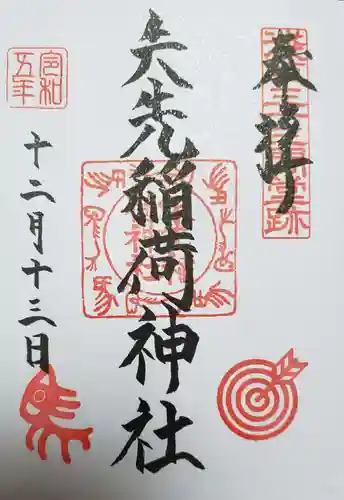 奉拝
矢先稲荷神社
令和
五年
十二月十三日